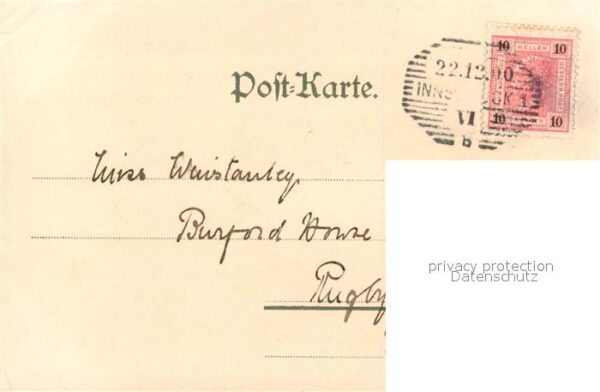 10 HELLER 10
22.12.00
INNS CK 1
VI
8
10 10
Post=Karte.
Miss Winstanley
Burford House
Rugby
privacy protection
Datenschutz